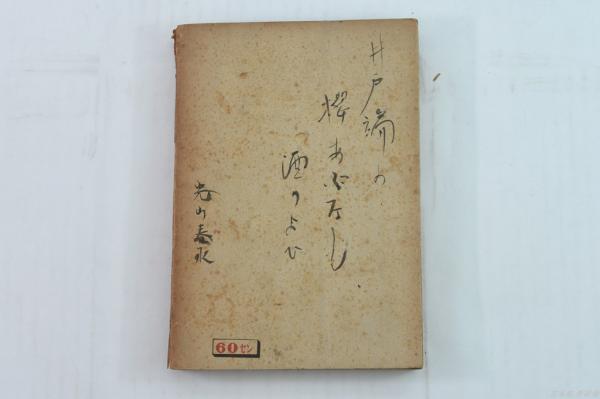 井戸端の
桜あぶなし
酒のよひ
老山春水
60セン